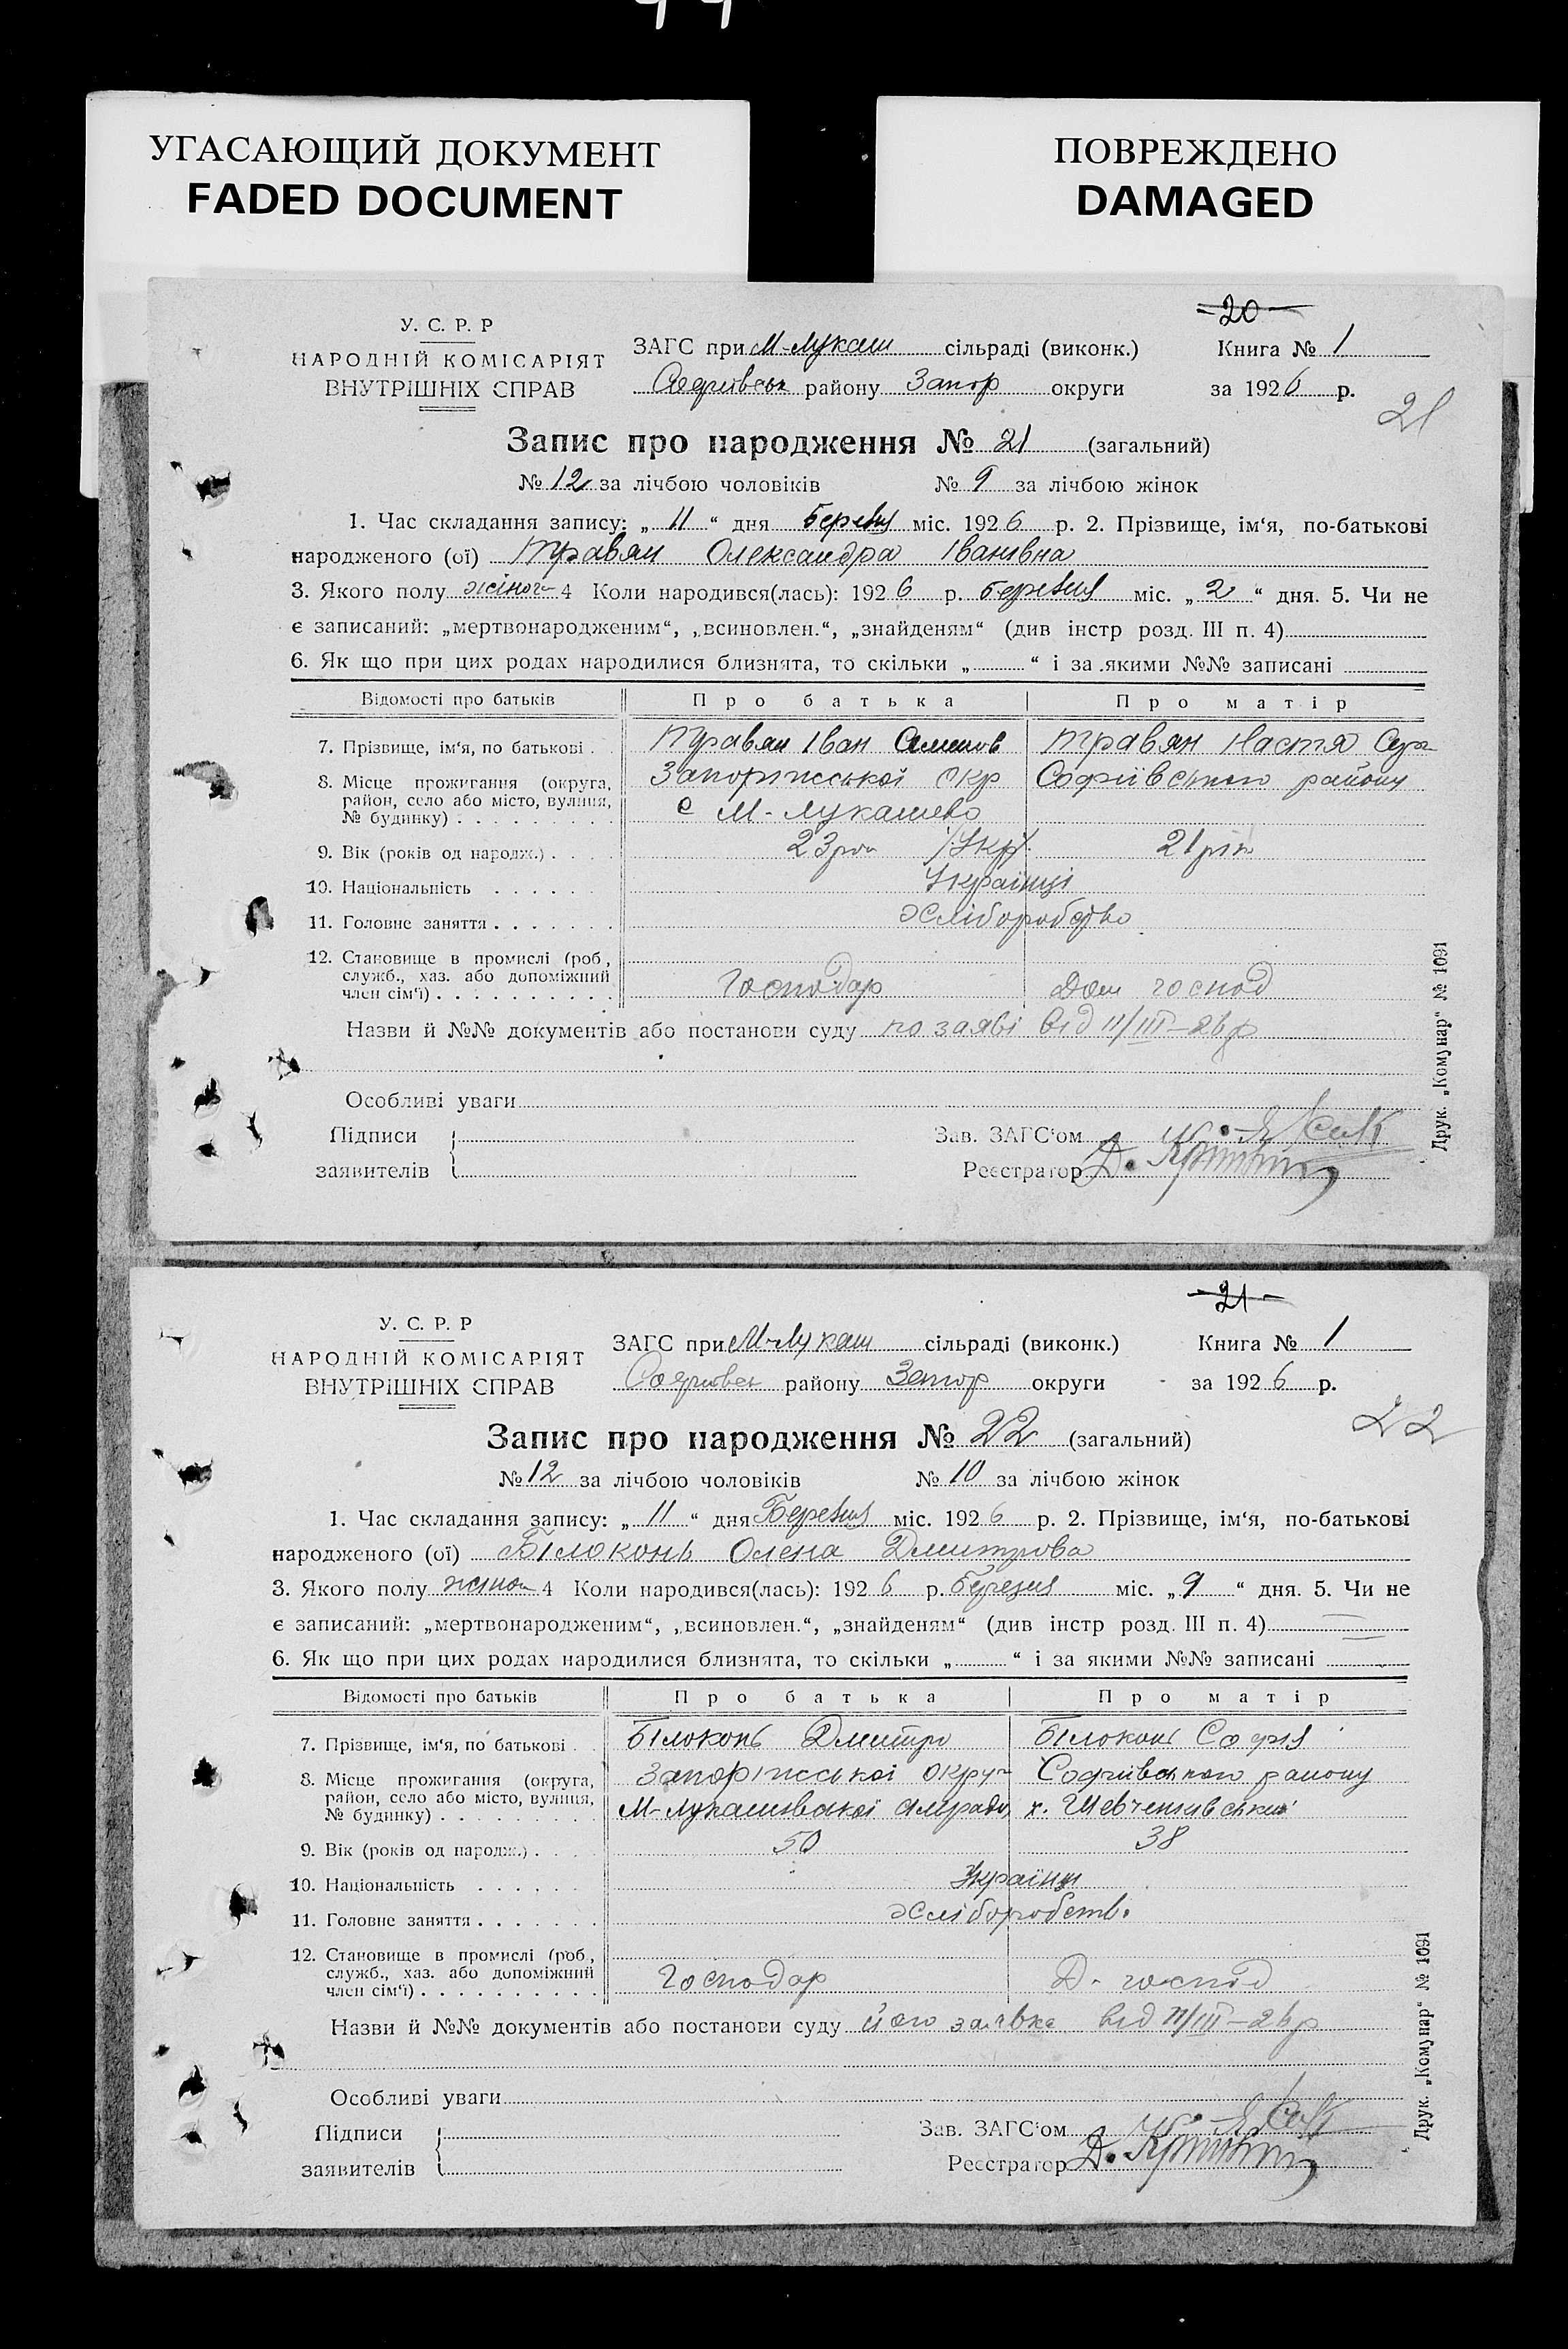 УГАСАЮЩИЙ ДОКУМЕНТ
FADED DOCUMENT
ПОВРЕЖДЕНО
DAMAGED
20
У. С. Р. Р
НАРОДНІЙ КОМІСАРІЯТ
ВНУТРІШНІХ СПРАВ
ЗАГС при М-Лукаш сільраді (виконк.)
Книга № 1
Софиївськ району Запор округи
за 1926 р.
21
Запис про народження № 21 (загальний)
№ 12 за лічбою чоловіків № 9 за лічбою жінок
1. Час складання запису: „ 11 “ дня Березня міс. 1926 р. 2. Прізвище, ім‘я, по-батькові
народженого (ої) Травян Олександра Іванівна
3. Якого полу жіноч 4 Коли народився(лась): 1926 р. березня міс. „ 2 “ дня. 5. Чи не
є записаний: „мертвонародженим“, „всиновлен.“, „знайденям“ (див інстр розд. III п. 4)
6. Як що при цих родах народилися близнята, то скільки „ “ і за якими №№ записані
Відомості про батьків Про батька Про матір
7. Прізвище, ім‘я, по батькові Травян Іван Семенов Травян Настя
8. Місце прожигання (округа, район, село або місто, вулиця, № будинку) Запоріжської Окр Софиївського району
с М-Лукашево
9. Вік (років од народж.) 23 рок /Укр/ 21 рік
10. Національність Українці
11. Головне заняття Хліборобство
12. Становище в промислі (роб, служб., хаз. або допоміжний член сім‘ї) Господар Дом господ
Назви й №№ документів або постанови суду по заяві від 11/III–26 р
Особливі уваги
Підписи
заявителів
Зав. ЗАГС‘ом
Реєстратор
Друк. „Комунар“ № 1091
21
У. С. Р. Р
НАРОДНІЙ КОМІСАРІЯТ
ВНУТРІШНІХ СПРАВ
ЗАГС при М-Лукаш сільраді (виконк.)
Книга № 1
Софиївськ району Запор округи
за 1926 р.
22
Запис про народження № 22 (загальний)
№ 12 за лічбою чоловіків № 10 за лічбою жінок
1. Час складання запису: „ 11 “ дня Березня міс. 1926 р. 2. Прізвище, ім‘я, по-батькові
народженого (ої) Білоконь Олена Дмитрова
3. Якого полу жіноч 4 Коли народився(лась): 1926 р. березня міс. „ 9 “ дня. 5. Чи не
є записаний: „мертвонародженим“, „всиновлен.“, „знайденям“ (див інстр розд. III п. 4)
6. Як що при цих родах народилися близнята, то скільки „ “ і за якими №№ записані
Відомості про батьків Про батька Про матір
7. Прізвище, ім‘я, по батькові Білоконь Дмитро Білоконь Софія
8. Місце прожигання (округа, район, село або місто, вулиця, № будинку) Запоріжської округ Софиївського району
М-Лукашівської сільради х. Шевченківський
9. Вік (років од народж.) 50 38
10. Національність Українці
11. Головне заняття Хліборобств.
12. Становище в промислі (роб, служб., хаз. або допоміжний член сім‘ї) Господар Д. господ
Назви й №№ документів або постанови суду його заявка від 11/III–26 р
Особливі уваги
Підписи
заявителів
Зав. ЗАГС‘ом
Реєстратор
Друк. „Комунар“ № 1091